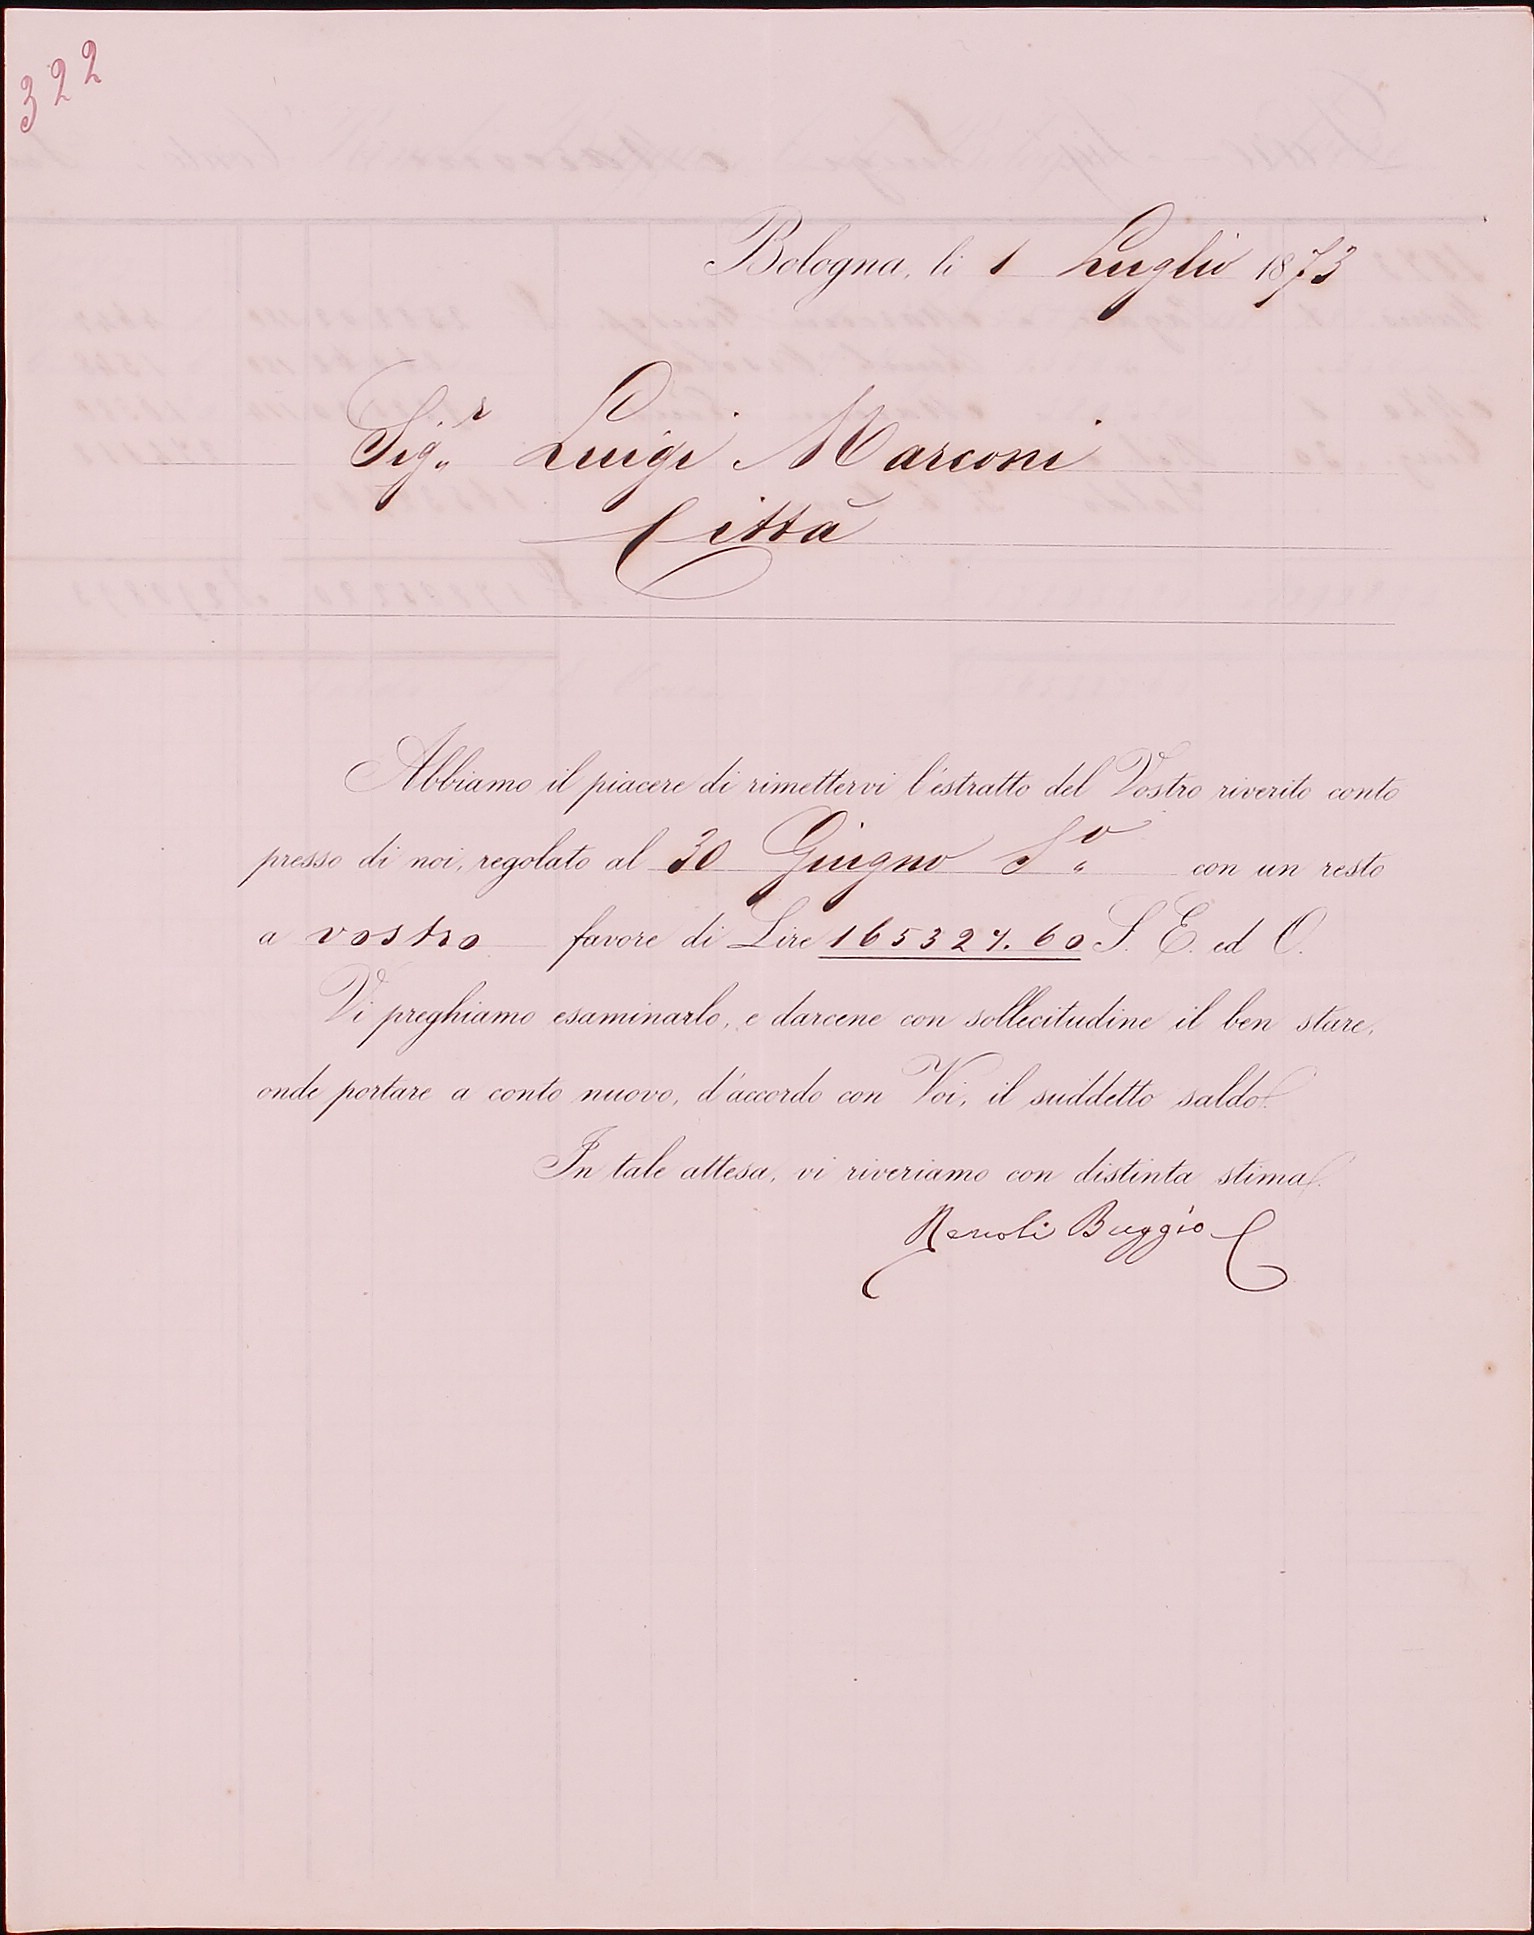 322
Bologna, li 1 Luglio 1873
Sig.r Luigi Marconi
Città
Abbiamo il piacere di rimettervi l'estratto del Vostro riverito conto
presso di noi, regolato al 30 Giugno S.o con un resto
a vostro favore di Lire 165327.60 S. E. ed O.
Vi preghiamo esaminarlo, e darcene con sollecitudine il ben stare,
onde portare a conto nuovo, d'accordo con Voi, il suddetto saldo.
In tale attesa, vi riveriamo con distinta stima.
Renoli Buggio